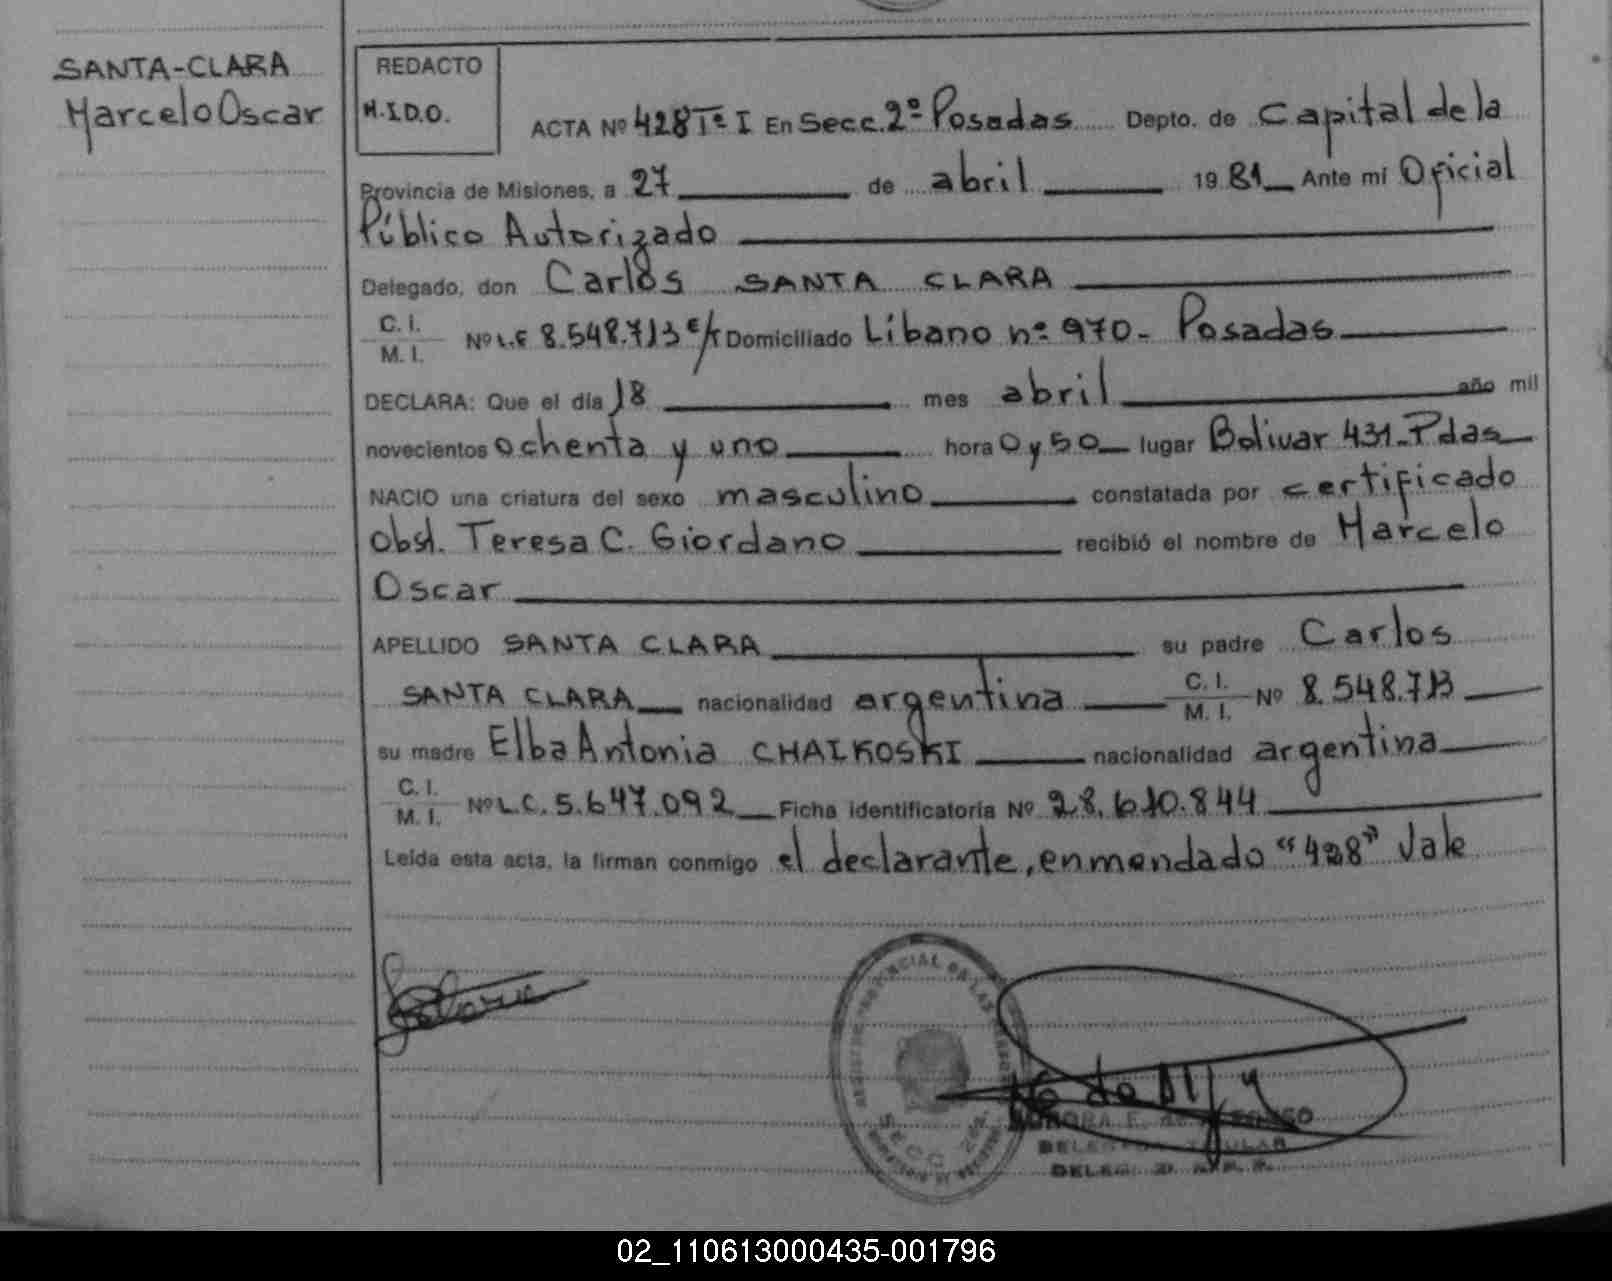 SANTA-CLARA
Marcelo Oscar
REDACTO
M.I.D.O.
ACTA Nº 428 Tº I En Secc. 2º Posadas Depto. de Capital de la
Provincia de Misiones, a 27 de abril 19 81 Ante mí Oficial
Público Autorizado
Delegado, don Carlos SANTA CLARA
C. I.
M. I. Nº L.E 8.548.713 Domiciliado Líbano nº 970- Posadas
DECLARA: Que el día 18 mes abril año mil
novecientos ochenta y uno hora 0 y 50 lugar Bolivar 431-Pdas
NACIO una criatura del sexo masculino constatada por certificado
Obst. Teresa C. Giordano recibió el nombre de Marcelo
Oscar
APELLIDO SANTA CLARA su padre Carlos
SANTA CLARA nacionalidad argentina C. I. M. I. Nº 8.548.713
su madre Elba Antonia CHAIKOSKI nacionalidad argentina
C. I.
M. I. Nº L.C. 5.647.092 Ficha identificatoria Nº 28.610.844
Leída esta acta, la firman conmigo el declarante, enmendado "428" Vale
SECC 2da.
DELEGADA TITULAR
02_110613000435-001796